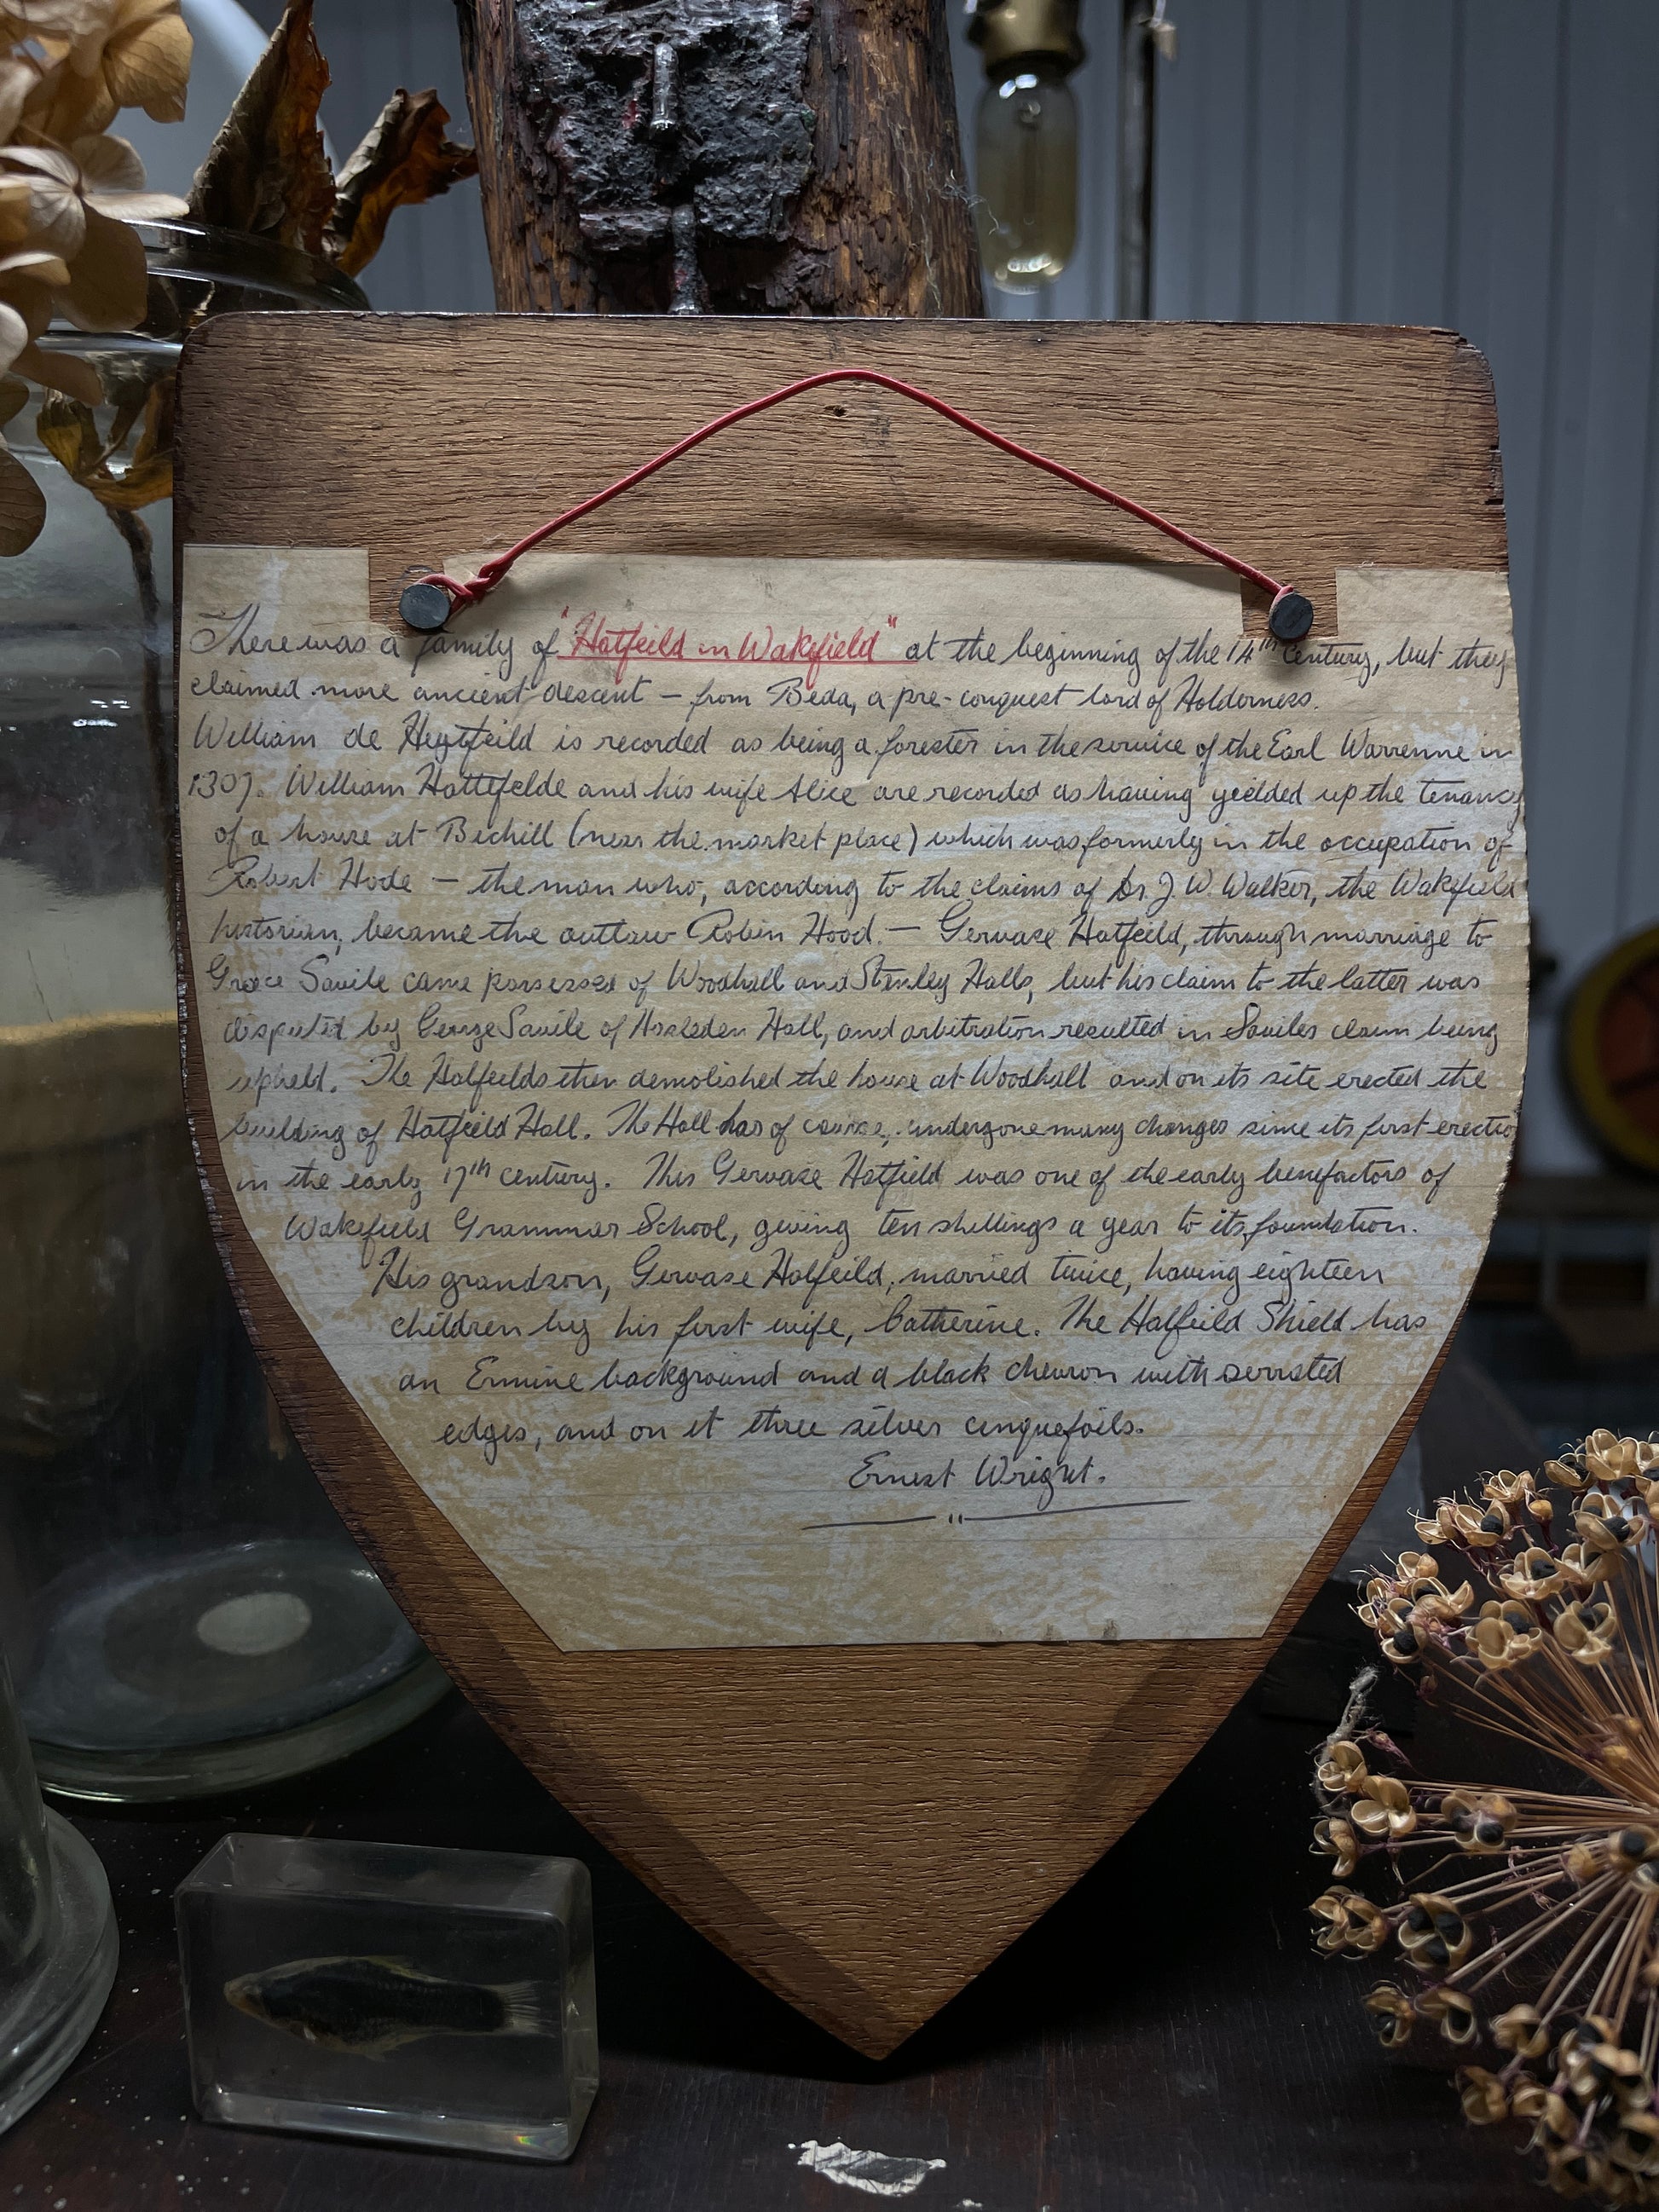 There was a family of "Hatfeild in Wakefield" at the beginning of the 14th Century, but they
claimed more ancient descent — from Beda, a pre-conquest lord of Holderness.
William de Heytfeild is recorded as being a forester in the service of the Earl Warrenne in
1307. William Hattefelde and his wife Alice are recorded as having yielded up the tenancy
of a house at Bichill (near the market place) which was formerly in the occupation of
Robert Hode — the man who, according to the claims of Dr. J. W. Walker, the Wakefield
historian, became the outlaw Robin Hood. — Gervase Hatfeild, through marriage to
Grace Savile came possessed of Woodhall and Stanley Halls, but his claim to the latter was
disputed by George Savile of Hasleden Hall, and arbitration resulted in Saviles claim being
upheld. The Hatfeilds then demolished the house at Woodhall and on its site erected the
building of Hatfeild Hall. The Hall has of course, undergone many changes since its first erection
in the early 17th century. This Gervase Hatfield was one of the early benefactors of
Wakefield Grammar School, giving ten shillings a year to its foundation.
His grandson, Gervase Hatfeild, married twice, having eighteen
children by his first wife, Catherine. The Hatfeild Shield has
an Ermine background and a black chevron with serrated
edges, and on it three silver cinquefoils.
Ernest Wright.